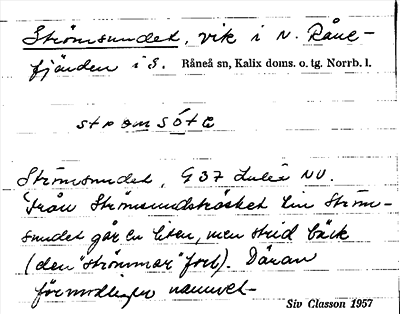 Strömsundet, vik i N. Råne-
fjärden i S. Råneå sn, Kalix doms. o. tg. Norrb. l.
Strömsundet, G 37 Luleå NV.
Från Strömsundsträsket till Ström-
sundet går en liten, men strid bäck
(den "strömmar" fort). Därav
förmodligen namnet.
Siv Classon 1957